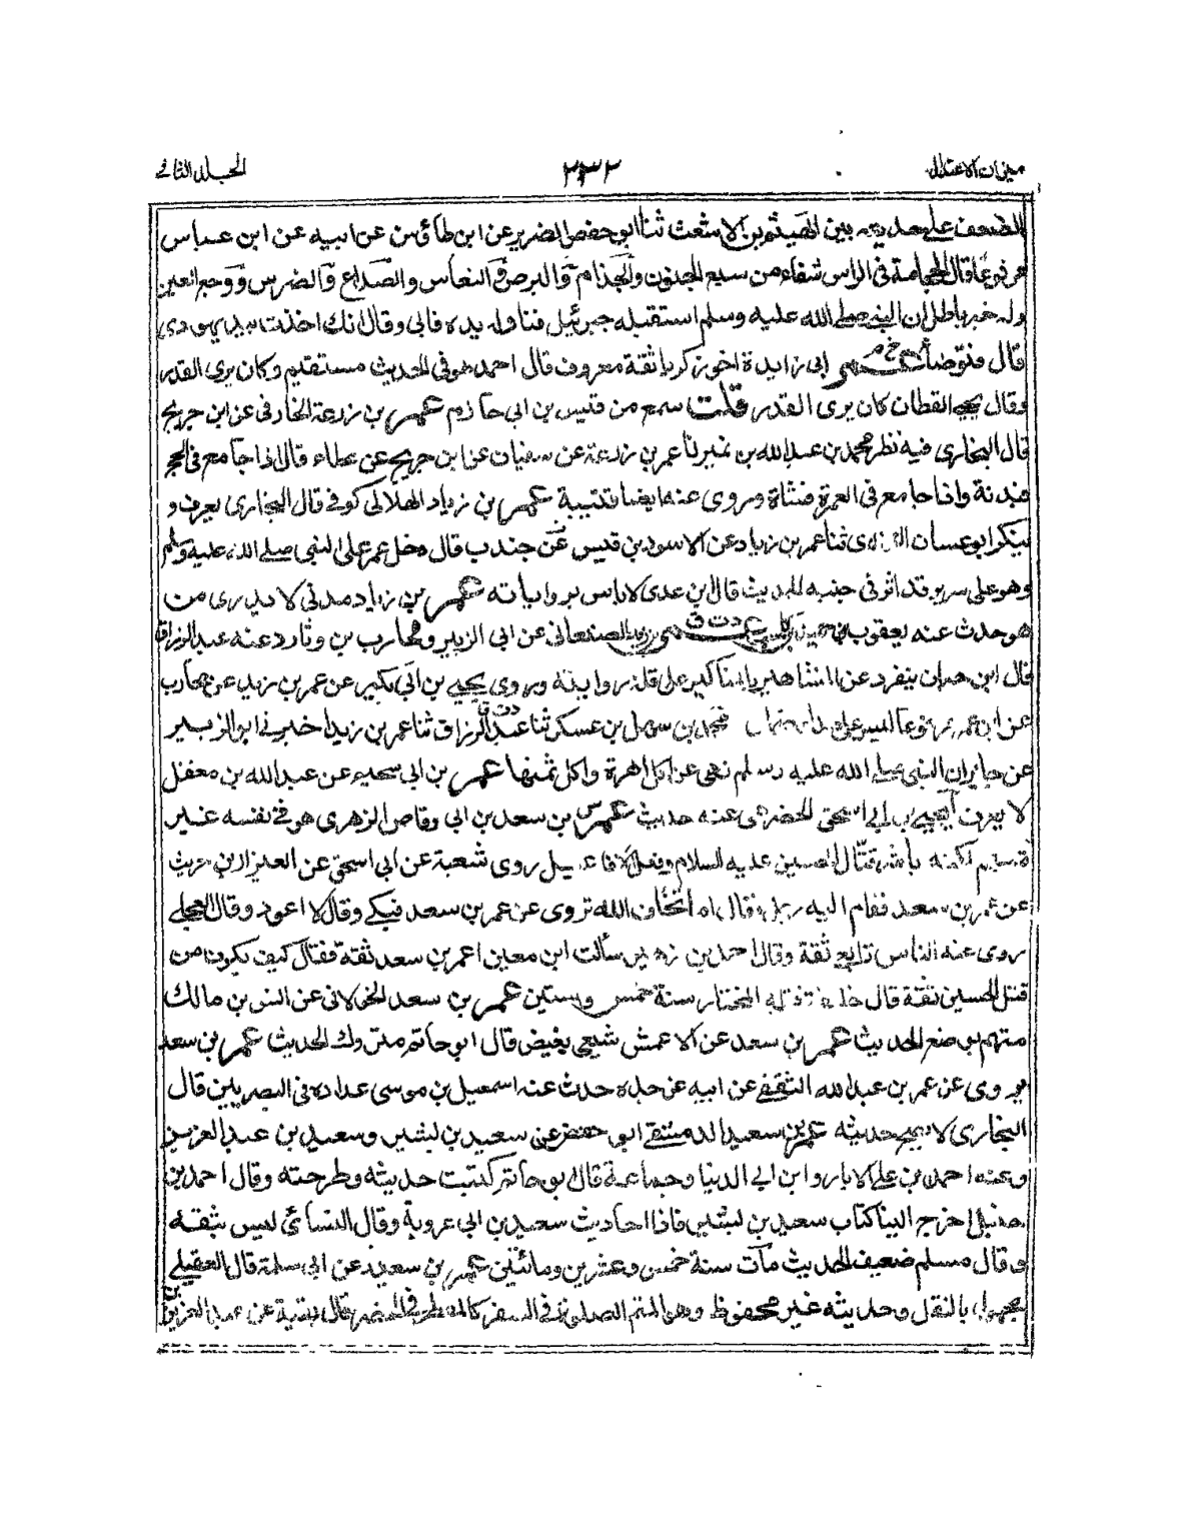 ميزان الاعتدال ٢٣٢ الجلد الثاني
الضعف على حديثه بين الهيثم بن الاشعث ثنا ابو حفص الضرير عن ابن طاؤس عن ابيه عن ابن عباس
مرفوعا قال الحجامة فى الراس شفاء من سبع الجنون والجذام والبرص والنعاس والصداع والضرس ووجع العين
وله خبر باطل ان النبي صلى الله عليه وسلم استقبله جبرئيل فناوله يده فابى وقال انك اخذت بيد يهودى
قال فتوضأ خ م ابى زايدة اخو زكريا ثقة معروف قال احمد هو فى الحديث مستقيم وكان يرى القدر
وقال يحيى القطان كان يرى القدر قلت سمع من قيس بن ابى حازم عمر بن زرعة الخارفى عن ابن جريج
قال البخارى فيه نظر محمد بن عبد الله بن نمير نا عمر بن زرعة عن سفيان عن ابن جريج عن عطاء قال اذا جامع فى الحج
فبدنة واذا جامع فى العمرة فشاة وروى عنه ايضا قتيبة عمر بن زياد الهلالى كوفى قال البخارى يعرف و
ينكر ابو غسان ثنا عمر بن زياد عن الاسود بن قيس عن جندب قال دخل عمر على النبي صلى الله عليه وسلم
وهو على سرير قد اثر فى جنبه الحديث قال ابن عدى لا باس برواياته عمر بن زياد مدنى لا يدرى من
هو حدث عنه يعقوب بن حميد بن كاسب عمر دت ق بن زيد الصنعانى عن ابى الزبير ومحارب بن دثار وعنه عبد الرزاق
قال ابن حبان ينفرد عن المشاهير بالمناكير على قلة روايته وروى يحيى بن ابى بكير عن عمر بن زيد عن محارب
عن ابن عمر مرفوعا محمد بن سهل بن عسكر ثنا عبد الرزاق دت ق ثنا عمر بن زيد اخبرنى ابو الزبير
عن جابر ان النبي صلى الله عليه وسلم نهى عن اكل الهرة واكل ثمنها عمر بن ابى سحيم عن عبد الله بن مغفل
لا يعرف يحيى بن ابى اسحق الحضرمى عنه حديث عمر س بن سعد بن ابى وقاص الزهرى هو فى نفسه غير
متهم لكنه باشر قتال الحسين عليه السلام وفعل الافاعيل روى شعبة عن ابى اسحق عن العيزار بن حريث
عن عمر بن سعد فقام اليه رجل فقال اما تخاف الله تروى عن عمر بن سعد فبكى وقال لا اعود وقال العجلى
روى عنه الناس تابعى ثقة وقال احمد بن زهير سألت ابن معين اعمر بن سعد ثقة فقال كيف يكون من
قتل الحسين ثقة قال خليفة قتله المختار سنة خمس وستين عمر بن سعد الخولانى عن انس بن مالك
متهم بوضع الحديث عمر بن سعد عن الاعمش شيعى بغيض قال ابو حاتم متروك الحديث عمر بن سعد
يروى عن عمر بن عبد الله الثقفى عن ابيه عن جده حدث عنه اسمعيل بن موسى عداده فى البصريين قال
البخارى لا يصح حديثه عمر بن سعيد الدمشقى ابو حفص عن سعيد بن بشير وسعيد بن عبد العزيز
وعنه احمد بن على الابار وابن ابى الدنيا وجماعة قال ابو حاتم كتبت حديثه وطرحته وقال احمد بن
حنبل اخرج الينا كتاب سعيد بن بشير فاذا احاديث سعيد بن ابى عروبة وقال النسائى ليس بثقة
وقال مسلم ضعيف الحديث مات سنة خمس وعشرين ومائتين عمر بن سعيد عن ابى سلمة قال العقيلى
مجهول بالنقل وحديثه غير محفوظ وهو المتم الصلوة فى السفر كالمفطر فى الحضر قال بقية عن عبد العزيز بن